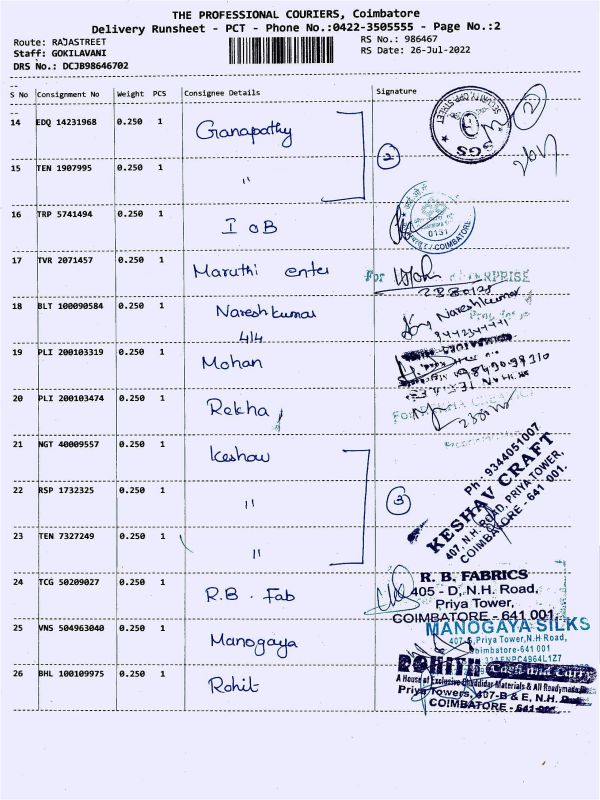 THE PROFESSIONAL COURIERS, Coimbatore
Delivery Runsheet - PCT - Phone No.:0422-3505555 - Page No.:2
Route: RAJASTREET RS No.: 986467
Staff: GOKILAVANI RS Date: 26-Jul-2022
DRS No.: DCJB98646702
--
S No Consignment No Weight PCS Consignee Details Signature
--
14 EDQ 14231968 0.250 1 Ganapathy
15 TEN 1907995 0.250 1 " 2
16 TRP 5741494 0.250 1 IOB
0137
COIMBATORE
17 TVR 2071457 0.250 1 Maruthi enter For ENTERPRISE
18 BLT 100090584 0.250 1 Nareshkumar Nareshkumar
414
19 PLI 200103319 0.250 1 Mohan
20 PLI 200103474 0.250 1 Rekha
21 NGT 40009557 0.250 1 Keshav
22 RSP 1732325 0.250 1 " 3
23 TEN 7327249 0.250 1 "
Ph : 9344051007
KESHAV CRAFT
407, N.H. ROAD, PRIYA TOWER,
COIMBATORE - 641 001.
24 TCG 50209027 0.250 1 R.B. Fab
R. B. FABRICS
405 - D, N.H. Road,
Priya Tower,
COIMBATORE - 641 001.
25 VNS 504963040 0.250 1 Manogaya
MANOGAYA SILKS
Priya Tower, N.H Road,
Coimbatore-641 001
26 BHL 100109975 0.250 1 Rohit
ROHITH
A House of Exclusive Chudidar Materials & All Readymades
Priya Towers, 407-B & E, N.H.
COIMBATORE - 641 001